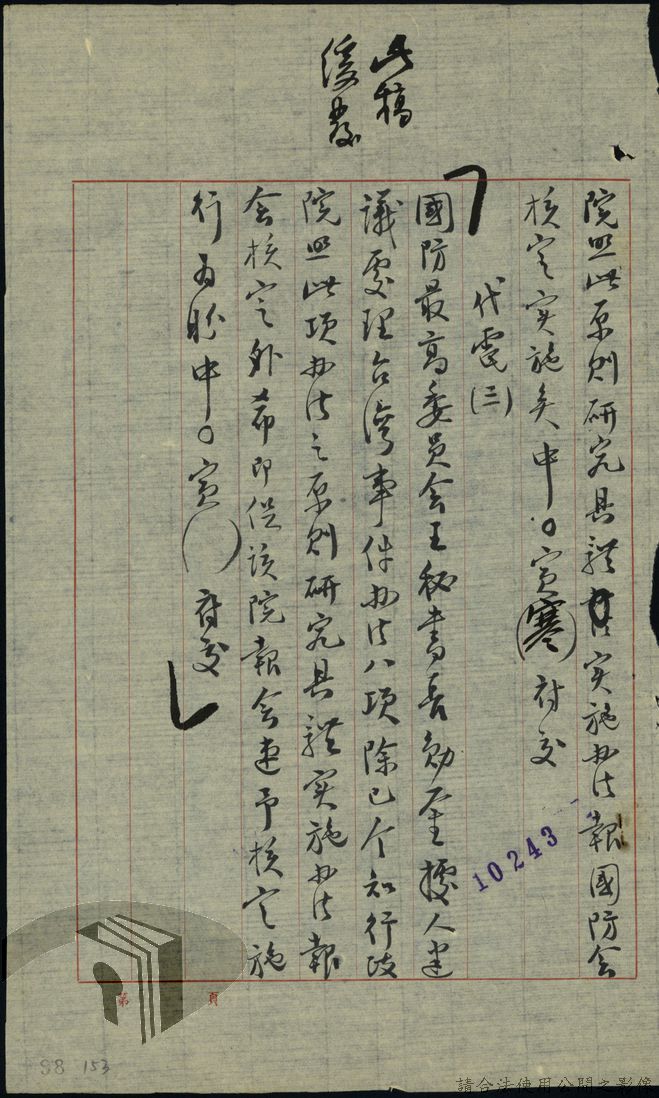 此稿
緩發
院照此原則研究具體實施办法報國防会
核定实施矣中。寅(寒)府交
代電(三)
國防最高委員会王秘書長勛鉴據人建
議處理台湾事件办法八項除已令知行政
院照此項办法之原則研究具體实施办法報
会核定外希即促该院報会速予核定施
行为盼中。寅( )府交
10243
第 頁
98 153
請合法使用公開之影像